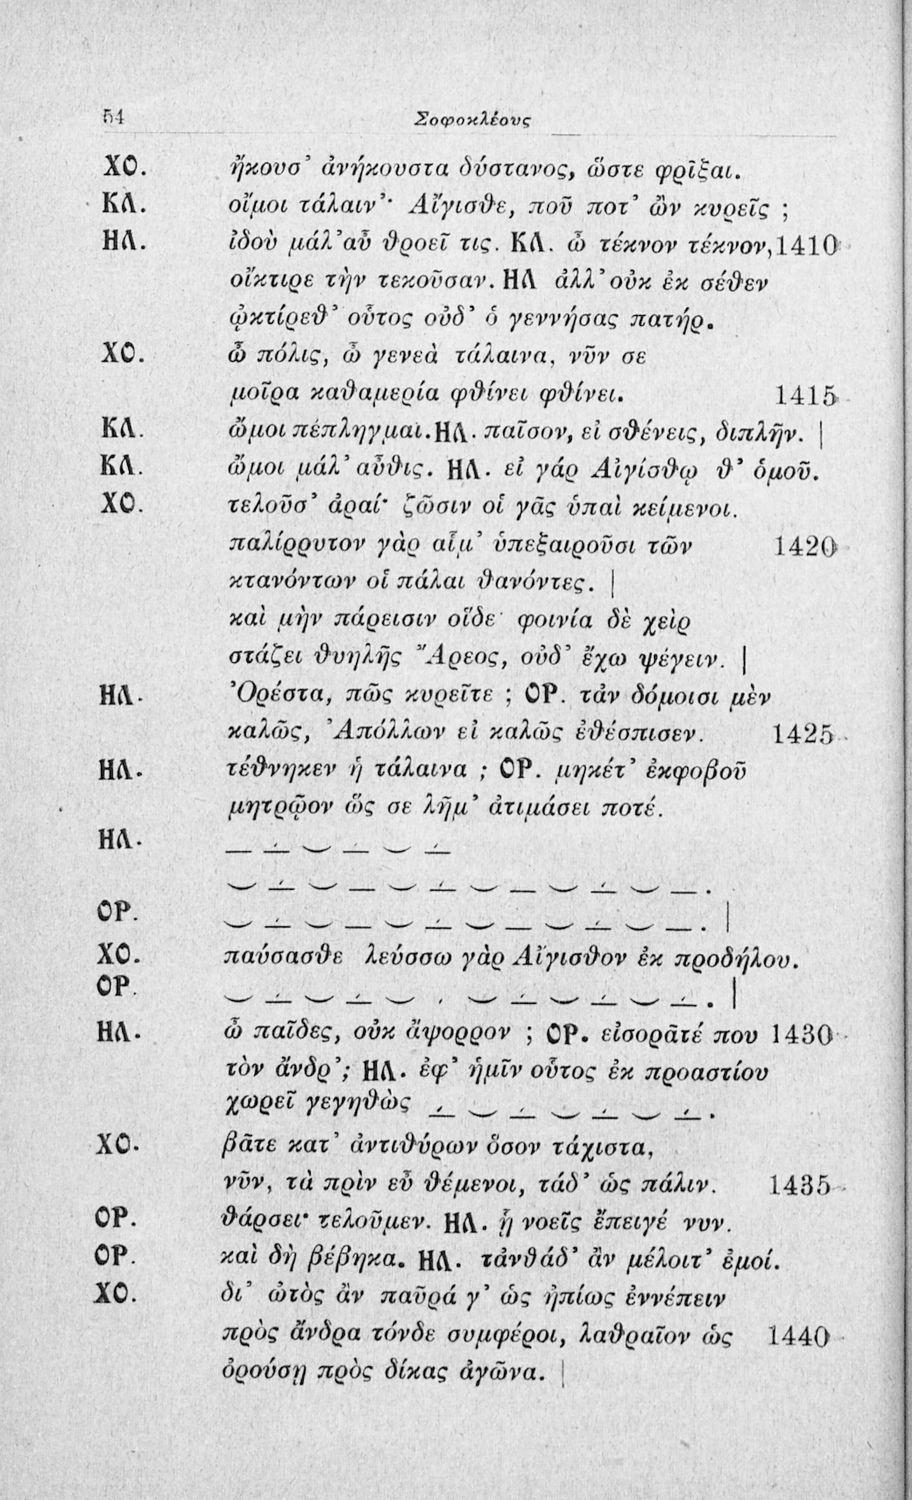 54 Σοφοκλέους
ΧΟ. ἤκουσ᾽ ἀνήκουστα δύστανος, ὥστε φρῖξαι.
ΚΛ. οἴμοι τάλαιν᾽· Αἴγισθε, ποῦ ποτ᾽ ὢν κυρεῖς ;
ΗΛ. ἰδοὺ μάλ᾽αὖ θροεῖ τις. ΚΛ. ὦ τέκνον τέκνον, 1410
οἴκτιρε τὴν τεκοῦσαν. ΗΛ ἀλλ᾽οὐκ ἐκ σέθεν
ᾠκτίρεθ᾽ οὗτος οὐδ᾽ ὁ γεννήσας πατήρ.
ΧΟ. ὦ πόλις, ὦ γενεὰ τάλαινα, νῦν σε
μοῖρα καθαμερία φθίνει φθίνει. 1415
ΚΛ. ὤμοι πέπληγμαι. ΗΛ. παῖσον, εἰ σθένεις, διπλῆν. |
ΚΛ. ὤμοι μάλ᾽ αὖθις. ΗΛ. εἰ γάρ Αἰγίσθῳ θ᾽ ὁμοῦ.
ΧΟ. τελοῦσ᾽ ἀραί· ζῶσιν οἱ γᾶς ὑπαὶ κείμενοι.
παλίρρυτον γὰρ αἷμ᾽ ὑπεξαιροῦσι τῶν 1420
κτανόντων οἱ πάλαι θανόντες. |
καὶ μὴν πάρεισιν οἵδε· φοινία δὲ χεὶρ
στάζει θυηλῆς Ἄρεος, οὐδ᾽ ἔχω ψέγειν. |
ΗΛ. Ὀρέστα, πῶς κυρεῖτε ; ΟΡ. τἀν δόμοισι μὲν
καλῶς, Ἀπόλλων εἰ καλῶς ἐθέσπισεν. 1425
ΗΛ. τέθνηκεν ἡ τάλαινα ; ΟΡ. μηκέτ᾽ ἐκφοβοῦ
μητρῷον ὥς σε λῆμ᾽ ἀτιμάσει ποτέ.
ΗΛ.
ΟΡ.
ΧΟ. παύσασθε λεύσσω γὰρ Αἴγισθον ἐκ προδήλου.
ΟΡ.
ΗΛ. ὦ παῖδες, οὐκ ἄψορρον ; ΟΡ. εἰσορᾶτέ που 1430
τὸν ἄνδρ᾽; ΗΛ. ἐφ᾽ ἡμῖν οὗτος ἐκ προαστίου
χωρεῖ γεγηθὼς
ΧΟ. βᾶτε κατ᾽ ἀντιθύρων ὅσον τάχιστα,
νῦν, τὰ πρὶν εὖ θέμενοι, τάδ᾽ ὡς πάλιν. 1435
ΟΡ. θάρσει· τελοῦμεν. ΗΛ. ᾗ νοεῖς ἔπειγέ νυν.
ΟΡ. καὶ δὴ βέβηκα. ΗΛ. τἀνθάδ᾽ ἂν μέλοιτ᾽ ἐμοί.
ΧΟ. δι᾽ ὠτὸς ἂν παῦρά γ᾽ ὡς ἠπίως ἐννέπειν
πρὸς ἄνδρα τόνδε συμφέροι, λαθραῖον ὡς 1440
ὀρούσῃ πρὸς δίκας ἀγῶνα. |